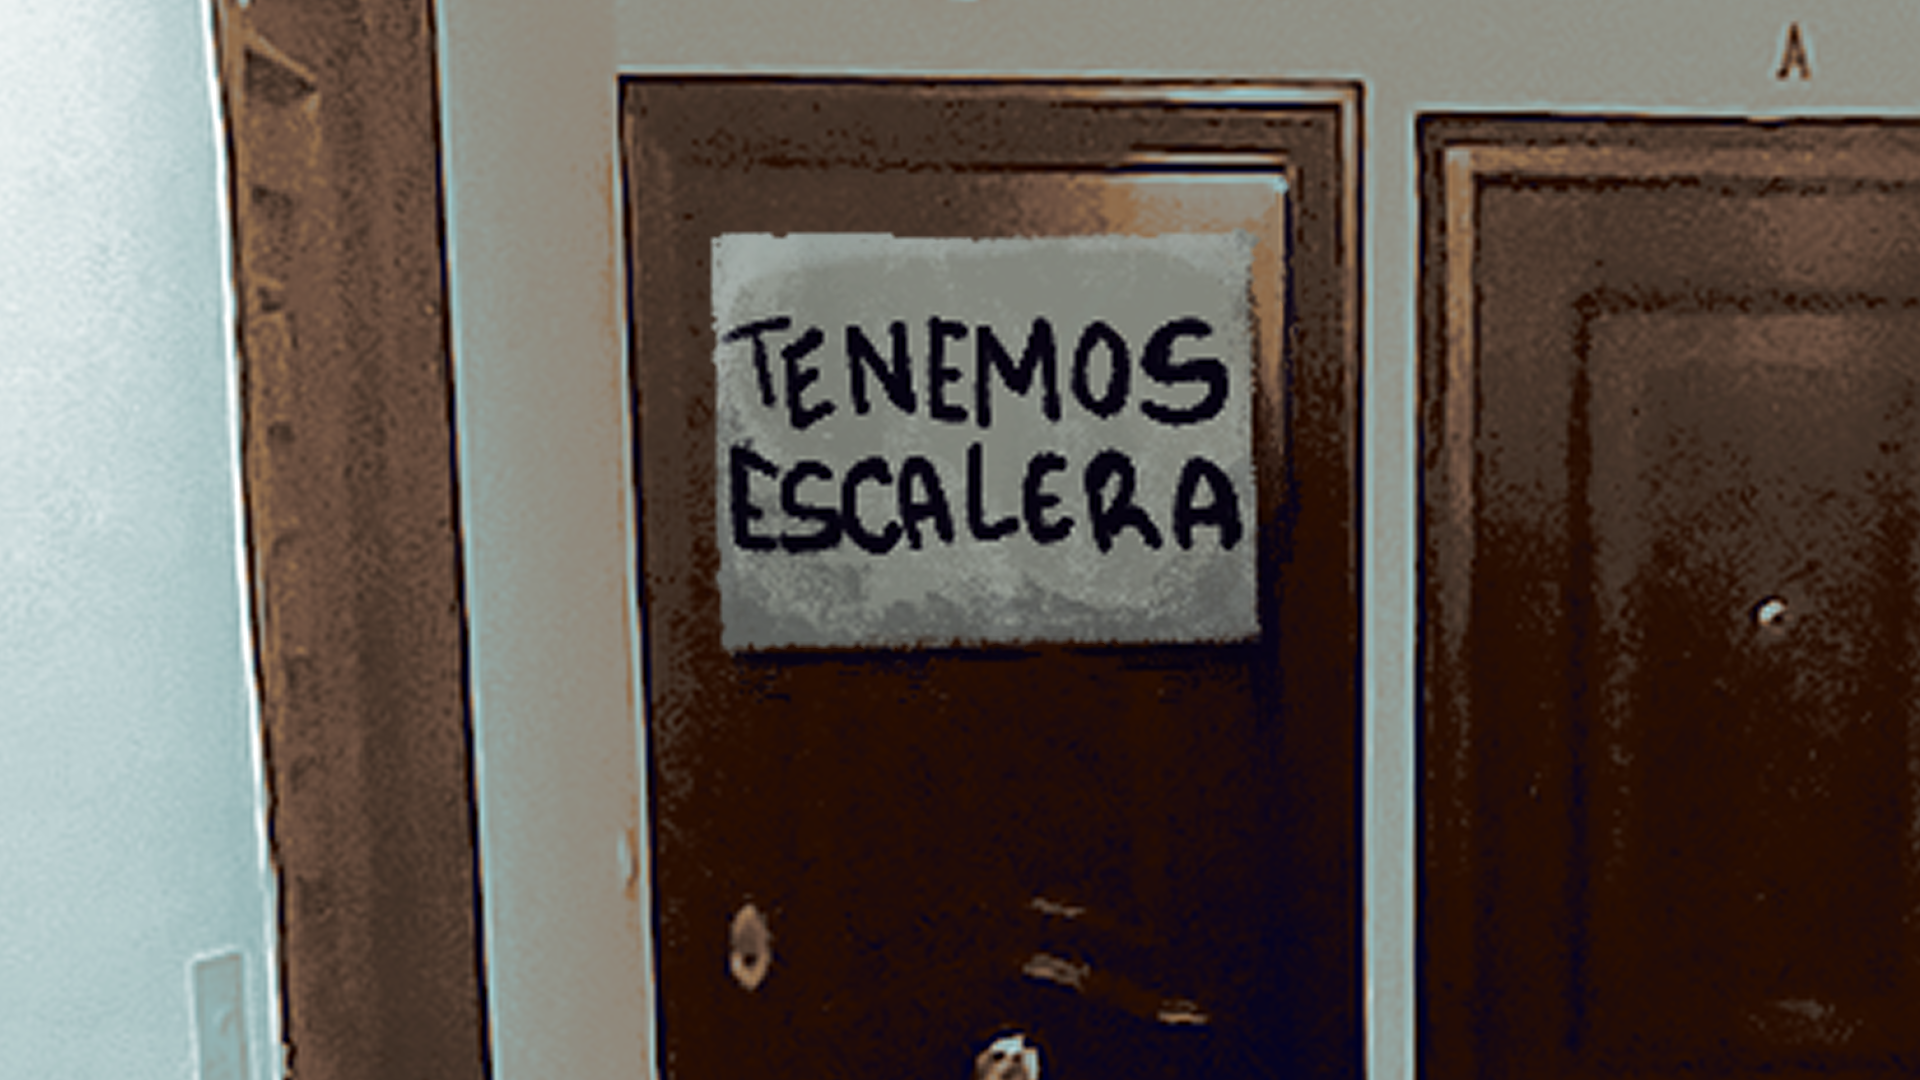 A
TENEMOS
ESCALERA